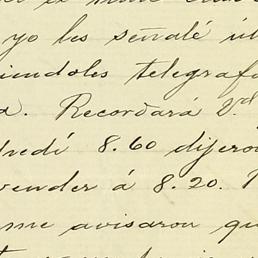 yo les señalé úl
iendoles telegrafa
a. Recordará Vd.
redí 8.60 dijero
vender á 8.20.
me avisaron qu